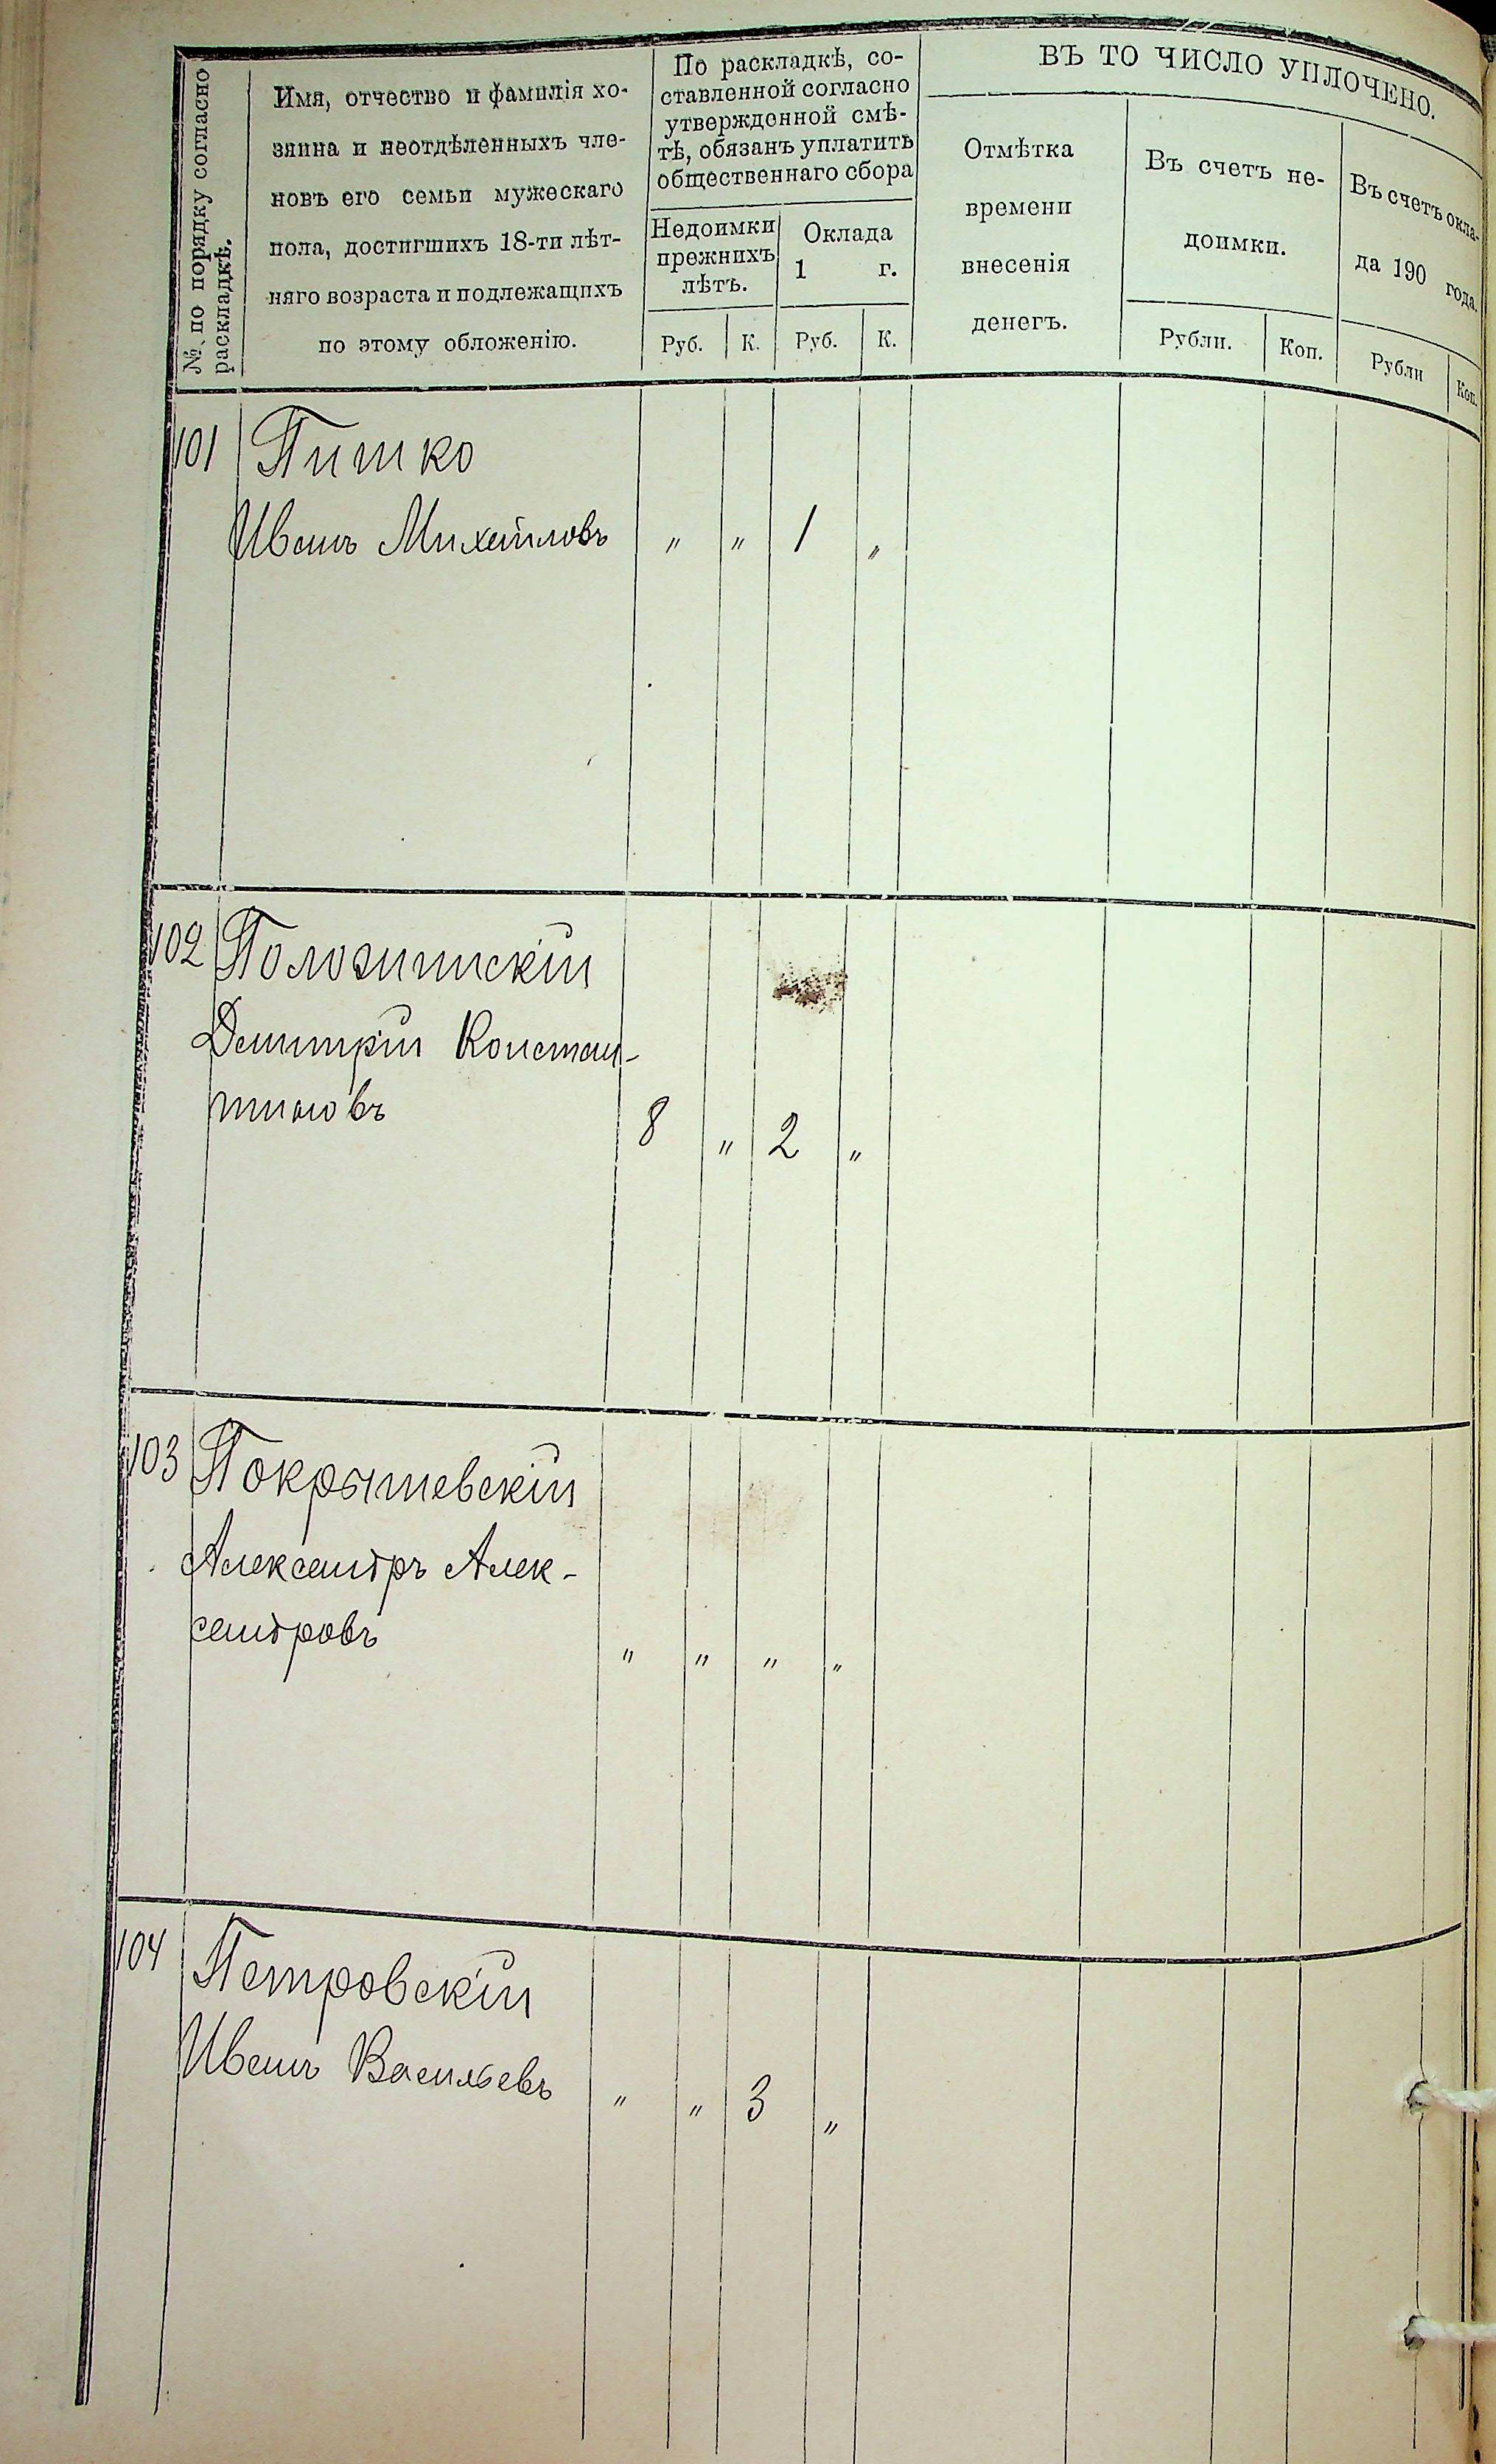 № по порядку согласно
раскладкѣ.
Имя, отчество и фамилія хо-
зяина и неотдѣленныхъ чле-
новъ его семьи мужескаго
пола, достигшихъ 18-ти лѣт-
няго возраста и подлежащихъ
по этому обложенію.
По раскладкѣ, со-
ставленной согласно
утвержденной смѣ-
тѣ, обязанъ уплатить
общественнаго сбора
Недоимки
прежнихъ
лѣтъ.
Руб. К.
Оклада
1 г.
Руб. К.
ВЪ ТО ЧИСЛО УПЛОЧЕНО.
Отмѣтка
времени
внесенія
денегъ.
Въ счетъ не-
доимки.
Рубли. Коп.
Въ счетъ окла-
да 190 года.
Рубли Коп.
101 Пишко
Иванъ Михайловъ „ „ 1 „
102
Дмитрій Констан-
тиновъ 8 „ 2 „
103 Покрышевскій
Александръ Алек-
сандровъ „ „ „ „
104 Петровскій
Иванъ Васильевъ „ „ 3 „